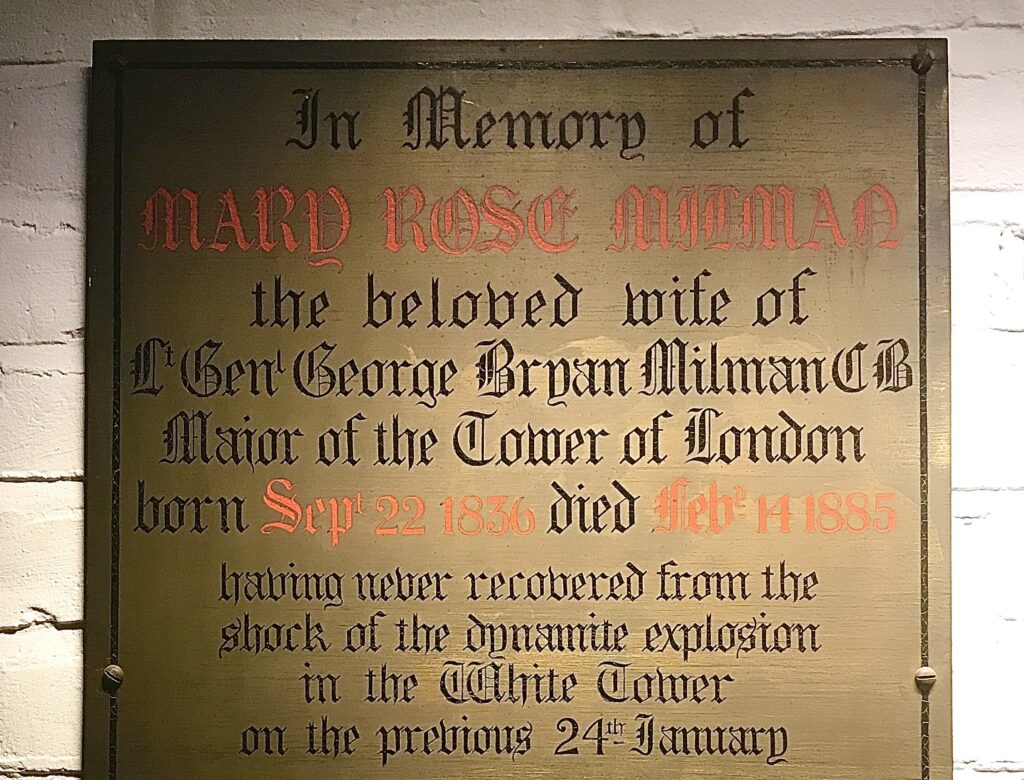 In Memory of
MARY ROSE MILMAN
the beloved wife of
Lt Genl George Bryan Milman CB
Major of the Tower of London
born Sept 22 1836 died Feby 14 1885
having never recovered from the
shock of the dynamite explosion
in the White Tower
on the previous 24th January